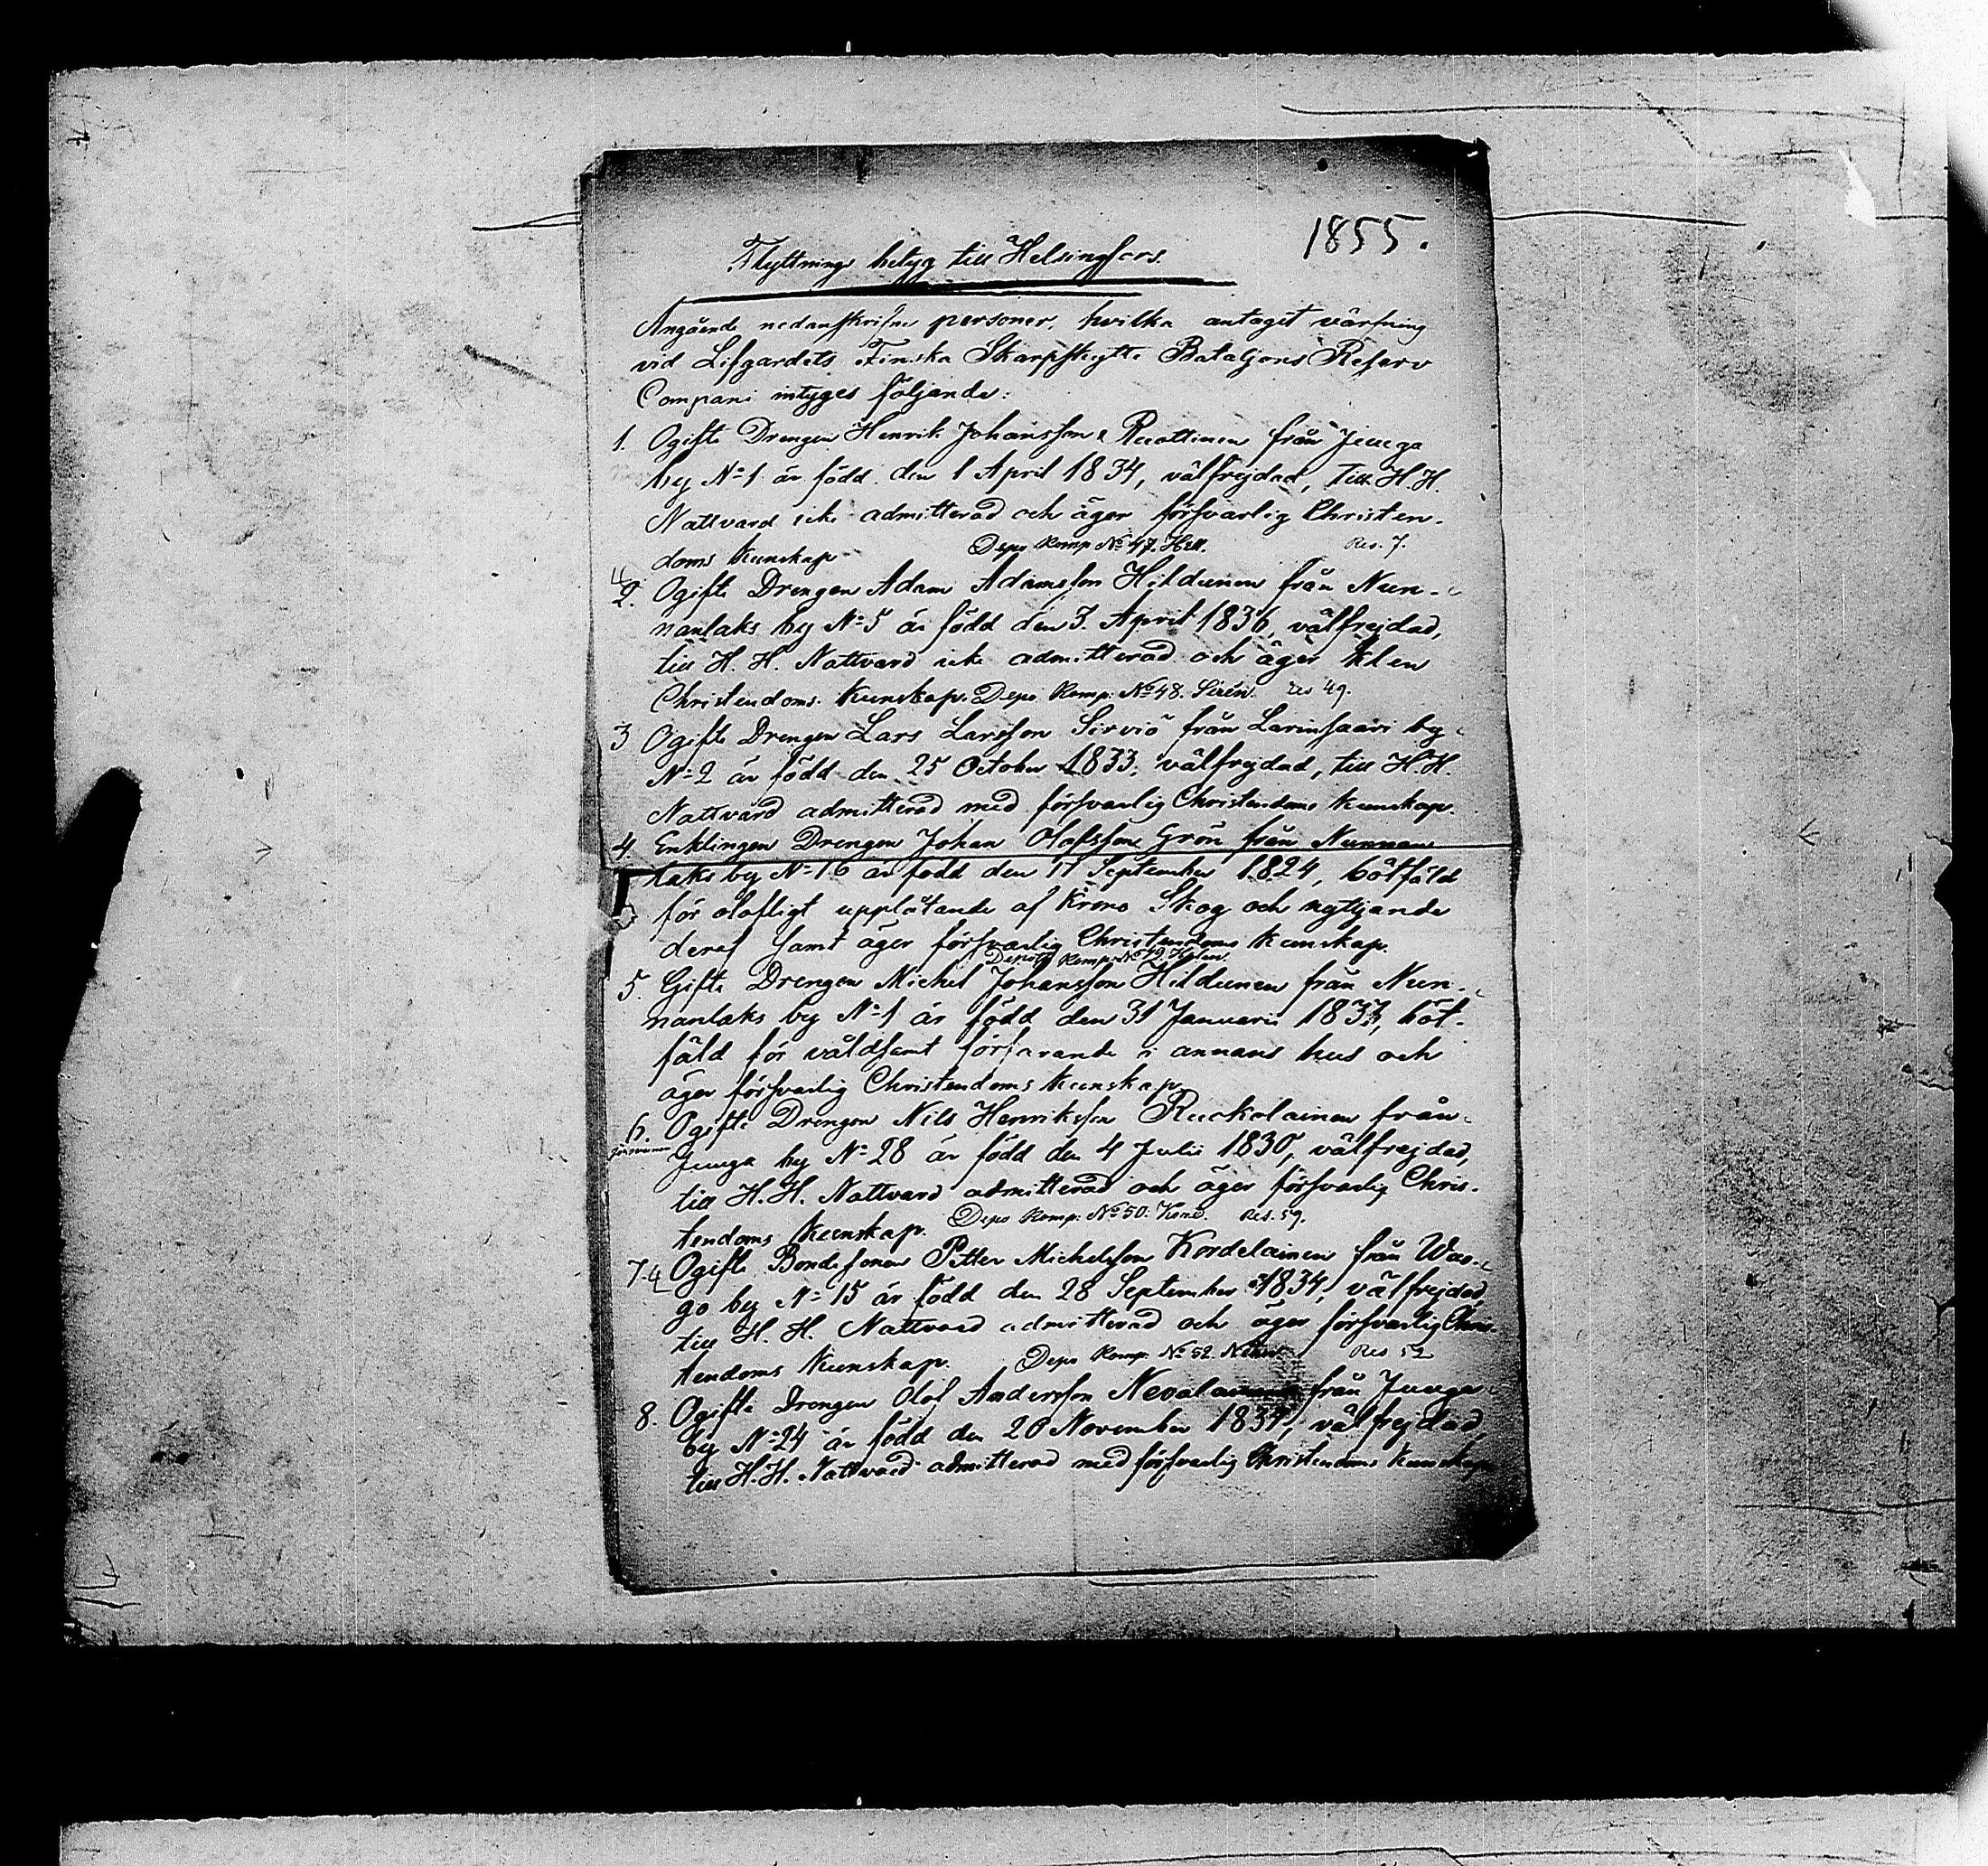 1855.
Flyttnings betyg till Helsingfors.
Angående nedanskrifne personer, hvilka antagit värfning
vid Lifgardets Finska Skarpskytte Bataljons Reserv
Compani intyges följande:
1. Ogifte Drengen Henrik Johansson Ruottinen från Juuga
by No 1 är född den 1 April 1834, välfrejdad, till H.H.
Nattvard icke admitterad och äger försvarlig Christen-
doms kunskap Depo Komp No 47. Hell. Res. 7.
2. Ogifte Drengen Adam Adamsson Hildunen från Nun-
nanlaks by No 5 är född den 3. April 1836, välfrejdad,
till H. H. Nattvard icke admitterad och äger klen
Christendoms kunskap. Depo Komp. No 48. Sirén. Res 49.
3 Ogifte Drengen Lars Larsson Sirviö från Larinsaari by
No 2 är född den 25 October 1833, välfrejdad, till H.H.
Nattvard admitterad med försvarlig Christendoms kunskap.
4. Enklingen Drengen Johan Olofsson Grön från Nunnan
laks by No 16 är född den 17 September 1824, bötfäld
för olofligt upplåtande af Krono Skog och nyttjande
deraf samt äger försvarlig Christendoms kunskap.
Depôt Komp. No 49
5. Gifte Drengen Michel Johansson Hildunen från Nun-
nanlaks by No 1 är född den 31 Januarii 1837, böt-
fäld för våldsamt förfarande i annans hus och
äger försvarlig Christendoms kunskap
6. Ogifte Drengen Nils Henriksson Ruokolainen från
Juuga by No 28 är född den 4 Julii 1830, välfrejdad,
till H.H. Nattvard admitterad och äger försvarlig Chris-
tendoms kunskap. Depo Komp: No 50. Res. 59.
7. Ogifte Bondesonen Petter Michelsson Kordelainen från Wao-
go by No 15 är född den 28 September 1834, välfrejdad,
till H. H. Nattvard admitterad och äger försvarlig Chris-
tendoms kunskap. Depo Komp. No 52. Res 52
8. Ogifte Drengen Olof Andersson Nevalainen från Juuga
by No 24 är född den 20 November 1834, välfrejdad,
till H.H. Nattvard admitterad med försvarlig Christendoms kunskap